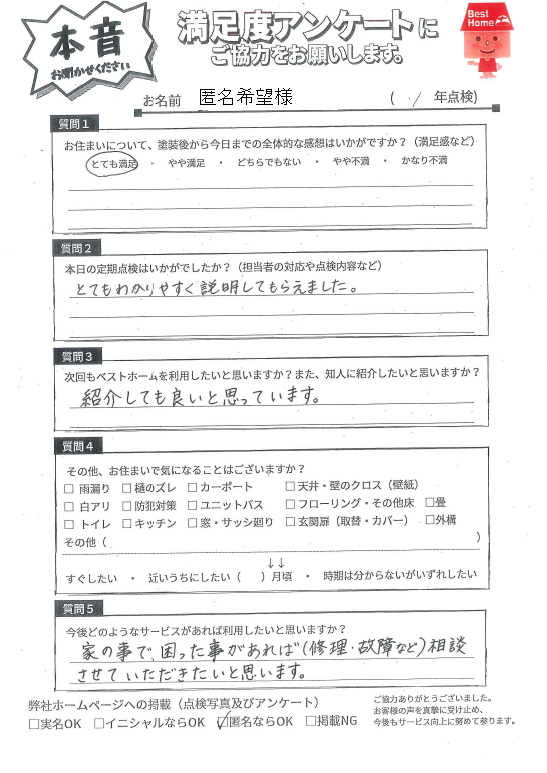 本音
お聞かせください
満足度アンケートに
ご協力をお願いします。
Best Home
お名前 匿名希望様 ( 1 年点検)
質問1
お住まいについて、塗装後から今日までの全体的な感想はいかがですか？（満足感など）
とても満足 ・ やや満足 ・ どちらでもない ・ やや不満 ・ かなり不満
質問2
本日の定期点検はいかがでしたか？（担当者の対応や点検内容など）
とてもわかりやすく説明してもらえました。
質問3
次回もベストホームを利用したいと思いますか？また、知人に紹介したいと思いますか？
紹介しても良いと思っています。
質問4
その他、お住まいで気になることはございますか？
□ 雨漏り □ 樋のズレ □ カーポート □ 天井・壁のクロス（壁紙）
□ 白アリ □ 防犯対策 □ ユニットバス □ フローリング・その他床 □畳
□ トイレ □ キッチン □ 窓・サッシ廻り □ 玄関扉（取替・カバー） □外構
その他（ ）
↓↓
すぐしたい ・ 近いうちにしたい（ ）月頃 ・ 時期は分からないがいずれしたい
質問5
今後どのようなサービスがあれば利用したいと思いますか？
家の事で、困った事があれば（修理・故障など）相談
させていただきたいと思います。
弊社ホームページへの掲載（点検写真及びアンケート）
□実名OK □イニシャルならOK ☑匿名ならOK □掲載NG
ご協力ありがとうございました。
お客様の声を真摯に受け止め、
今後もサービス向上に努めて参ります。